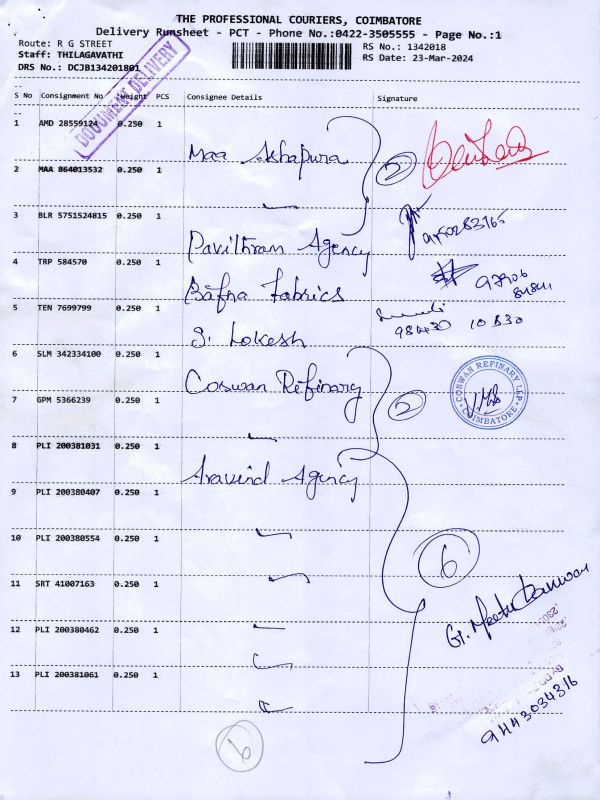 THE PROFESSIONAL COURIERS, COIMBATORE
Delivery Runsheet - PCT - Phone No.:0422-3505555 - Page No.:1
Route: R G STREET
Staff: THILAGAVATHI
DRS No.: DCJB134201801
RS No.: 1342018
RS Date: 23-Mar-2024
DOCUMENT DELIVERY
S No Consignment No Weight PCS Consignee Details Signature
1 AMD 28559124 0.250 1 Maa Akhapura
2 MAA 864013532 0.250 1
2
3 BLR 5751524815 0.250 1 Pavithram Agency
4 TRP 584570 0.250 1 Bafna Fabrics
97906
5 TEN 7699799 0.250 1 S. Lokesh
98430 10830
6 SLM 342334100 0.250 1 Coswan Refinary
7 GPM 5366239 0.250 1
2
COSWAN REFINARY LLP
COIMBATORE
8 PLI 200381031 0.250 1 Aravind Agency
9 PLI 200380407 0.250 1
10 PLI 200380554 0.250 1
6
11 SRT 41007163 0.250 1
12 PLI 200380462 0.250 1
13 PLI 200381061 0.250 1
9443034316
6